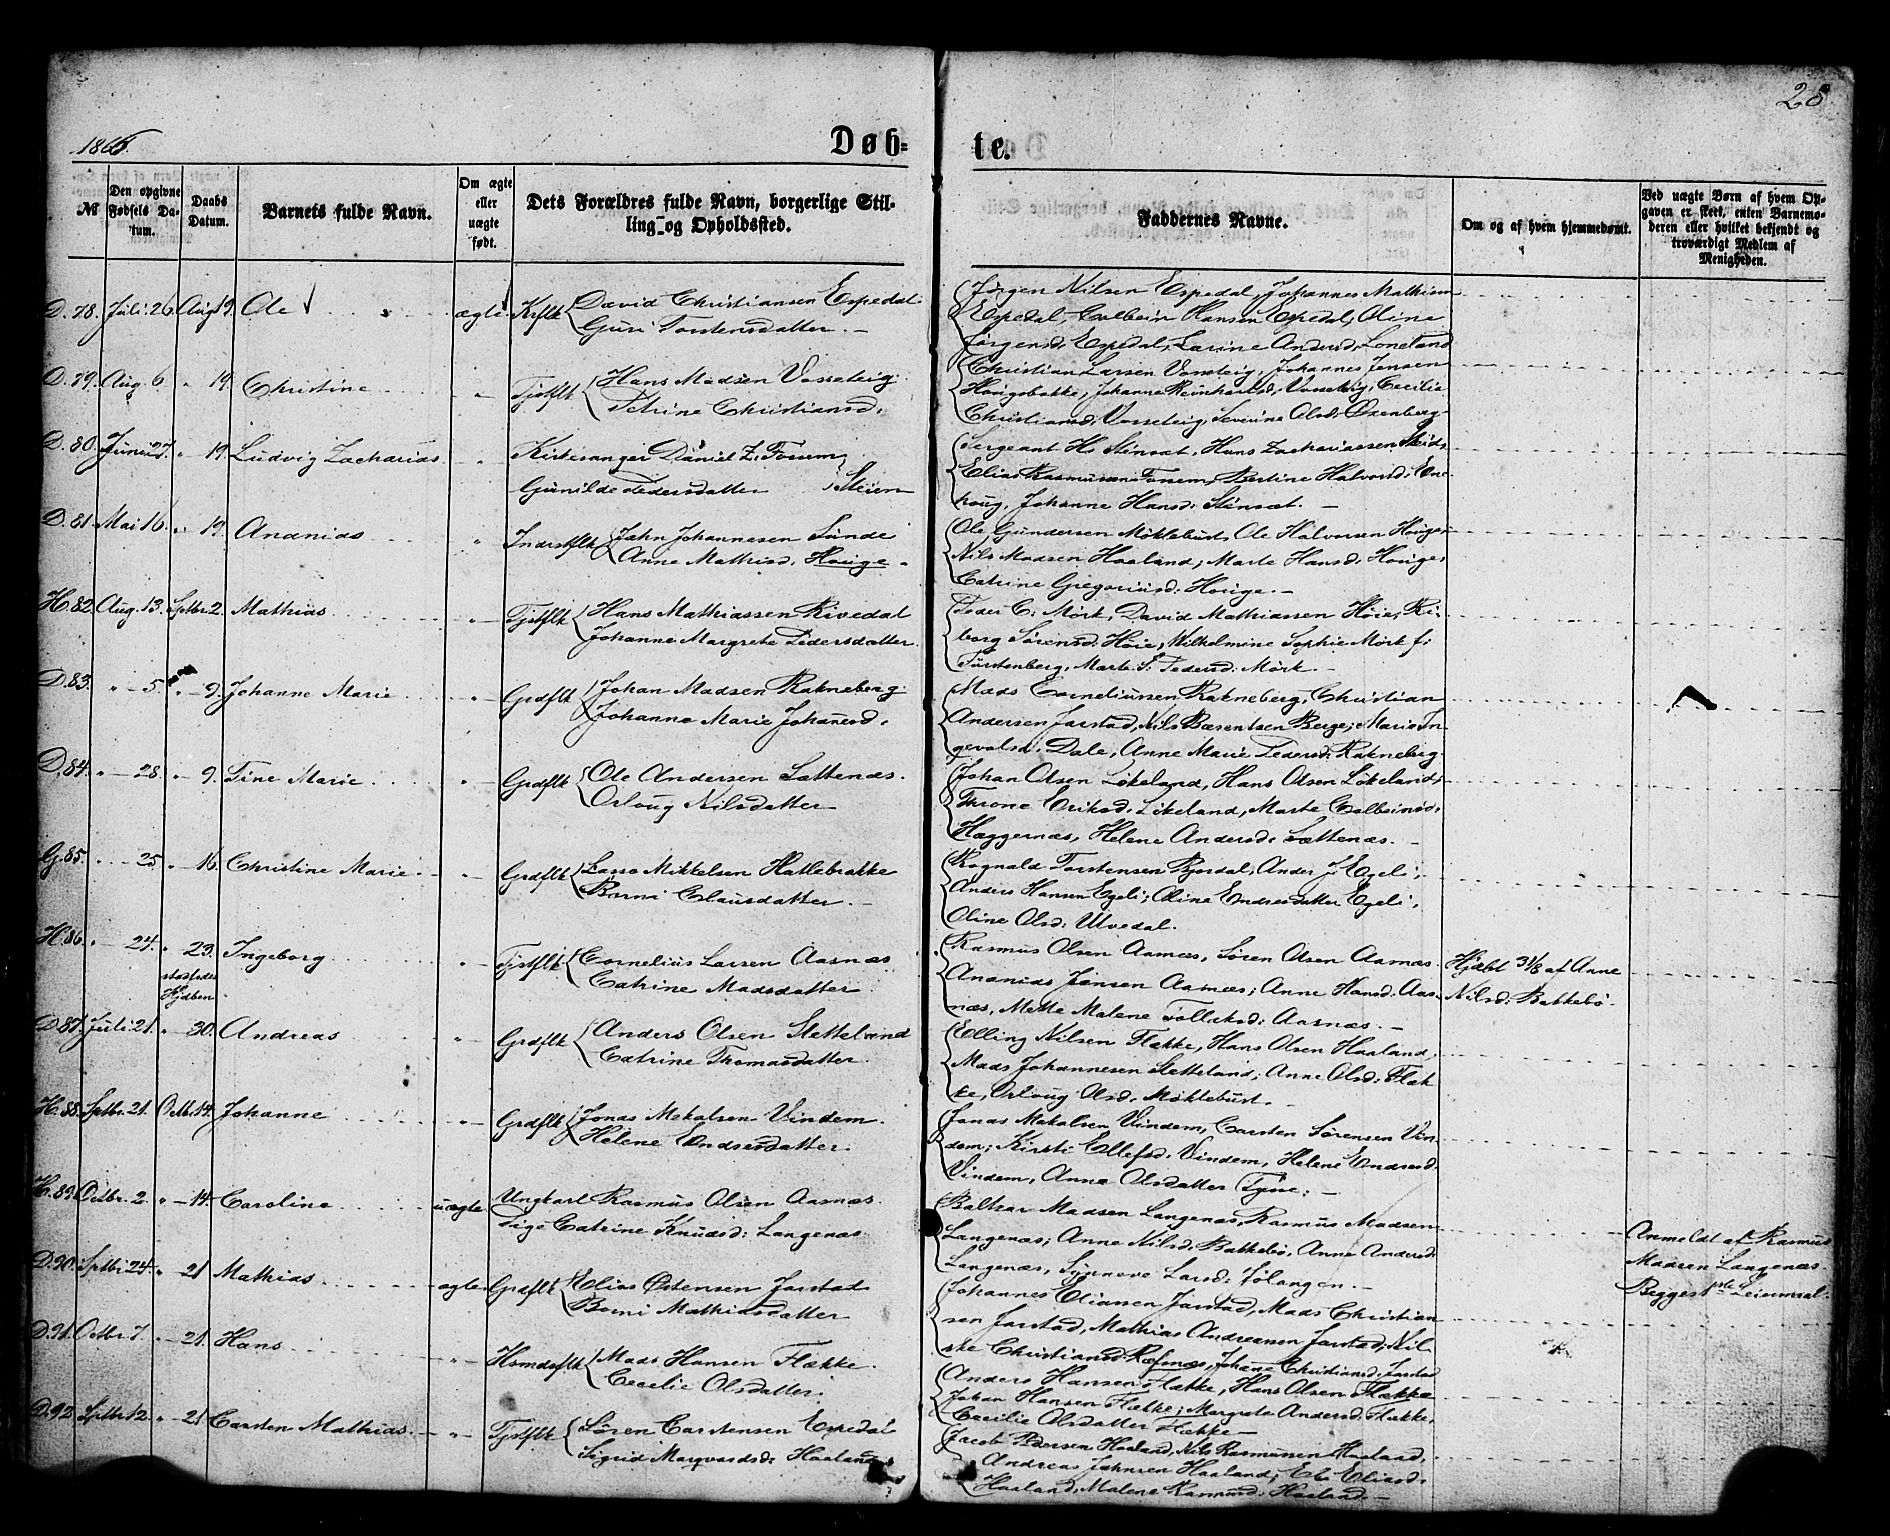 1866.
Døb=
te.
28
№
Den opgivne Fødsels Datum.
Daabs Datum.
Barnets fulde Navn.
Om ægte eller uægte født.
Dets Forældres fulde Navn, borgerlige Stilling og Opholdssted.
Faddernes Navne.
Om og af hvem hjemmedøbt.
Ved uægte Børn af hvem Opgaven er skeet, enten Barnemoderen eller hvilket bekjendt og troværdigt Medlem af Menigheden.
D. 78. Juli 26. Aug 19. Ole ægte Kflk David Christiansen Espedal
Guri Torstensdatter. —
Jørgen Nilsen Espedal, Johannes Mathisen
Espedal, Colbein Hansen Espedal, Oline
Jørgensd. Espedal, Larine Andersd. Loneland
D. 79. Aug. 6 " 19. Christine " Tjstflk Hans Madsen Vosseteig
Petrine Christiansd.
Christian Larsen Vosseteig, Johannes Jensen
Hougsbakke, Johanne Reinhardsd. Vosseteig, Cecilia
Christiansd. Vosseteig, Severine Olsd. Oxenberg
D. 80. Juni 27. " 19. Ludvig Zacharias " Kirkesanger Daniel Z. Fossem
Gunilde Pedersdatter Steien
Sergeant H. Stensæt, Hans Zachariassen
Elias Rasmussen Fossem, Bertine Halvorsd.
houg, Johanne Hansd. Stensæt. —
D. 81. Mai 16. " 19. Ananias " Inderstflk John Johannesen Sunde
Anne Mathisd. Houge.
Ole Gundersen Møklebust, Ole Halvorsen Houge,
Nils Madsen Haaland; Marte Hansd. Houge,
Catrine Gregoriusd. Houge. —
H. 82. Aug. 13. Sptbr 2. Mathias " Tjstflk Hans Mathiassen Rivedal
Johanne Margrete Pedersdatter
Peder C. Mörk, David Mathiassen Höie, Ri-
borg Sörensd. Höie, Wilhelmine Sophie Mörk f.
Fürstenberg, Marte S. Pedersd. Mörk. —
D. 83. " — 5 " — 9. Johanne Marie " Grdflk Johan Madsen Rakneberg
Johanne Marie Johansd.
Mads Corneliussen Rakneberg, Christian
Andersen Jarstad, Nils Bærentsen Berge; Marie In-
gevalsd. Dale, Anne Marie Pedersd. Rakneberg
D. 84. " — 28. " — 9. Tine Marie " Grdflk Ole Andersen Sættenæs.
Orloug Nilsdatter
Johan Olsen Lökeland, Hans Olsen Lökeland,
Throne Eriksd. Lökeland, Marte Colbeinsd.
Heggernæs, Helene Andersd. Sættenæs. —
G. 85. " — 25 " — 16. Christine Marie " Grdflk Lasse Mikkelsen Hatlebrække
Børni Clausdatter. —
Rognald Torstensen Bjordal, Anders J. Egeli,
Anders Hansen Egeli; Oline Endresdatter Egeli,
Oline Olsd. Utvedal.
H. 86. " — 24. " 23. Ingeborg " Tjstflk Cornelius Larsen Aasnæs
Catrine Madsdatter
stadfæstet
Hjdben
Rasmus Olsen Aasnæs, Sören Olsen Aasnæs
Ananias Jensen Aasnæs; Anne Hansd. Aas-
næs, Mette Malene Tollefsd. Aasnæs. —
Hjdbt 31/8 af Anne
Nilsd. Bakkebö.
D. 87. Juli 21. " — 30. Andreas " Grdflk Anders Olsen Stetteland
Catrine Thomasdatter
Elling Nilsen Flække, Hans Olsen Haaland,
Mads Johannesen Stetteland; Anne Olsd. Flæk-
ke, Orloug Olsd. Møklebust. —
H. 88. Sptbr. 21. Octbr 14. Johanne " Grdflk Jonas Mikalsen Vindem.
Helene Endresdatter.
Jonas Mikalsen Vindem, Carsten Sørensen Vin-
dem; Kirsti Ellefsd. Vindem, Helene Endresd.
Vindem, Anne Olsdatter
H. 89. Octbr. 2 " — 14. Caroline uægte Ungkarl Rasmus Olsen Aasnæs
Pige Catrine Knudsd: Langenæs
Baltzar Madsen Langenæs, Rasmus Madsen
Langenæs; Anne Nilsd. Bakkebö, Anne Andersd.
Langenæs, Synneve Larsd. Sølangen. —
Anmeldt af Rasmus
Madsen Langenæs.
D. 90. Sptbr. 24. " — 21 Mathias ægte Grdflk Elias Østensen Jarstad
Børni Mathiasdatter
Johannes Eliassen Jarstad, Mads Christian-
sen Jarstad, Mathias Andreassen Jarstad; Nil
ske Christiansd. Ræfnæs, Johanne Christiansd. Jarstad
D. 91. Octbr. 7. " — 21. Hans " Hsmdsflk Mads Hansen Flække.
Cecelie Olsdatter.
Anders Hansen Flække, Hans Olsen Flække
Johan Hansen Flække; Margrete Andersd. Flække,
Cecilie Olsdatter Flække —
D. 92. Sptbr 12. " — 21 Carsten Mathias. " Tjstflk Sören Carstensen Espedal
Sigrid Marqvardsd: Haaland
Jacob Pedersen Haaland, Nils Rasmussen Haaland,
Andreas Johnsen Haaland; Eli Eliasd.
Haaland, Malene Rasmusd. Haaland. —